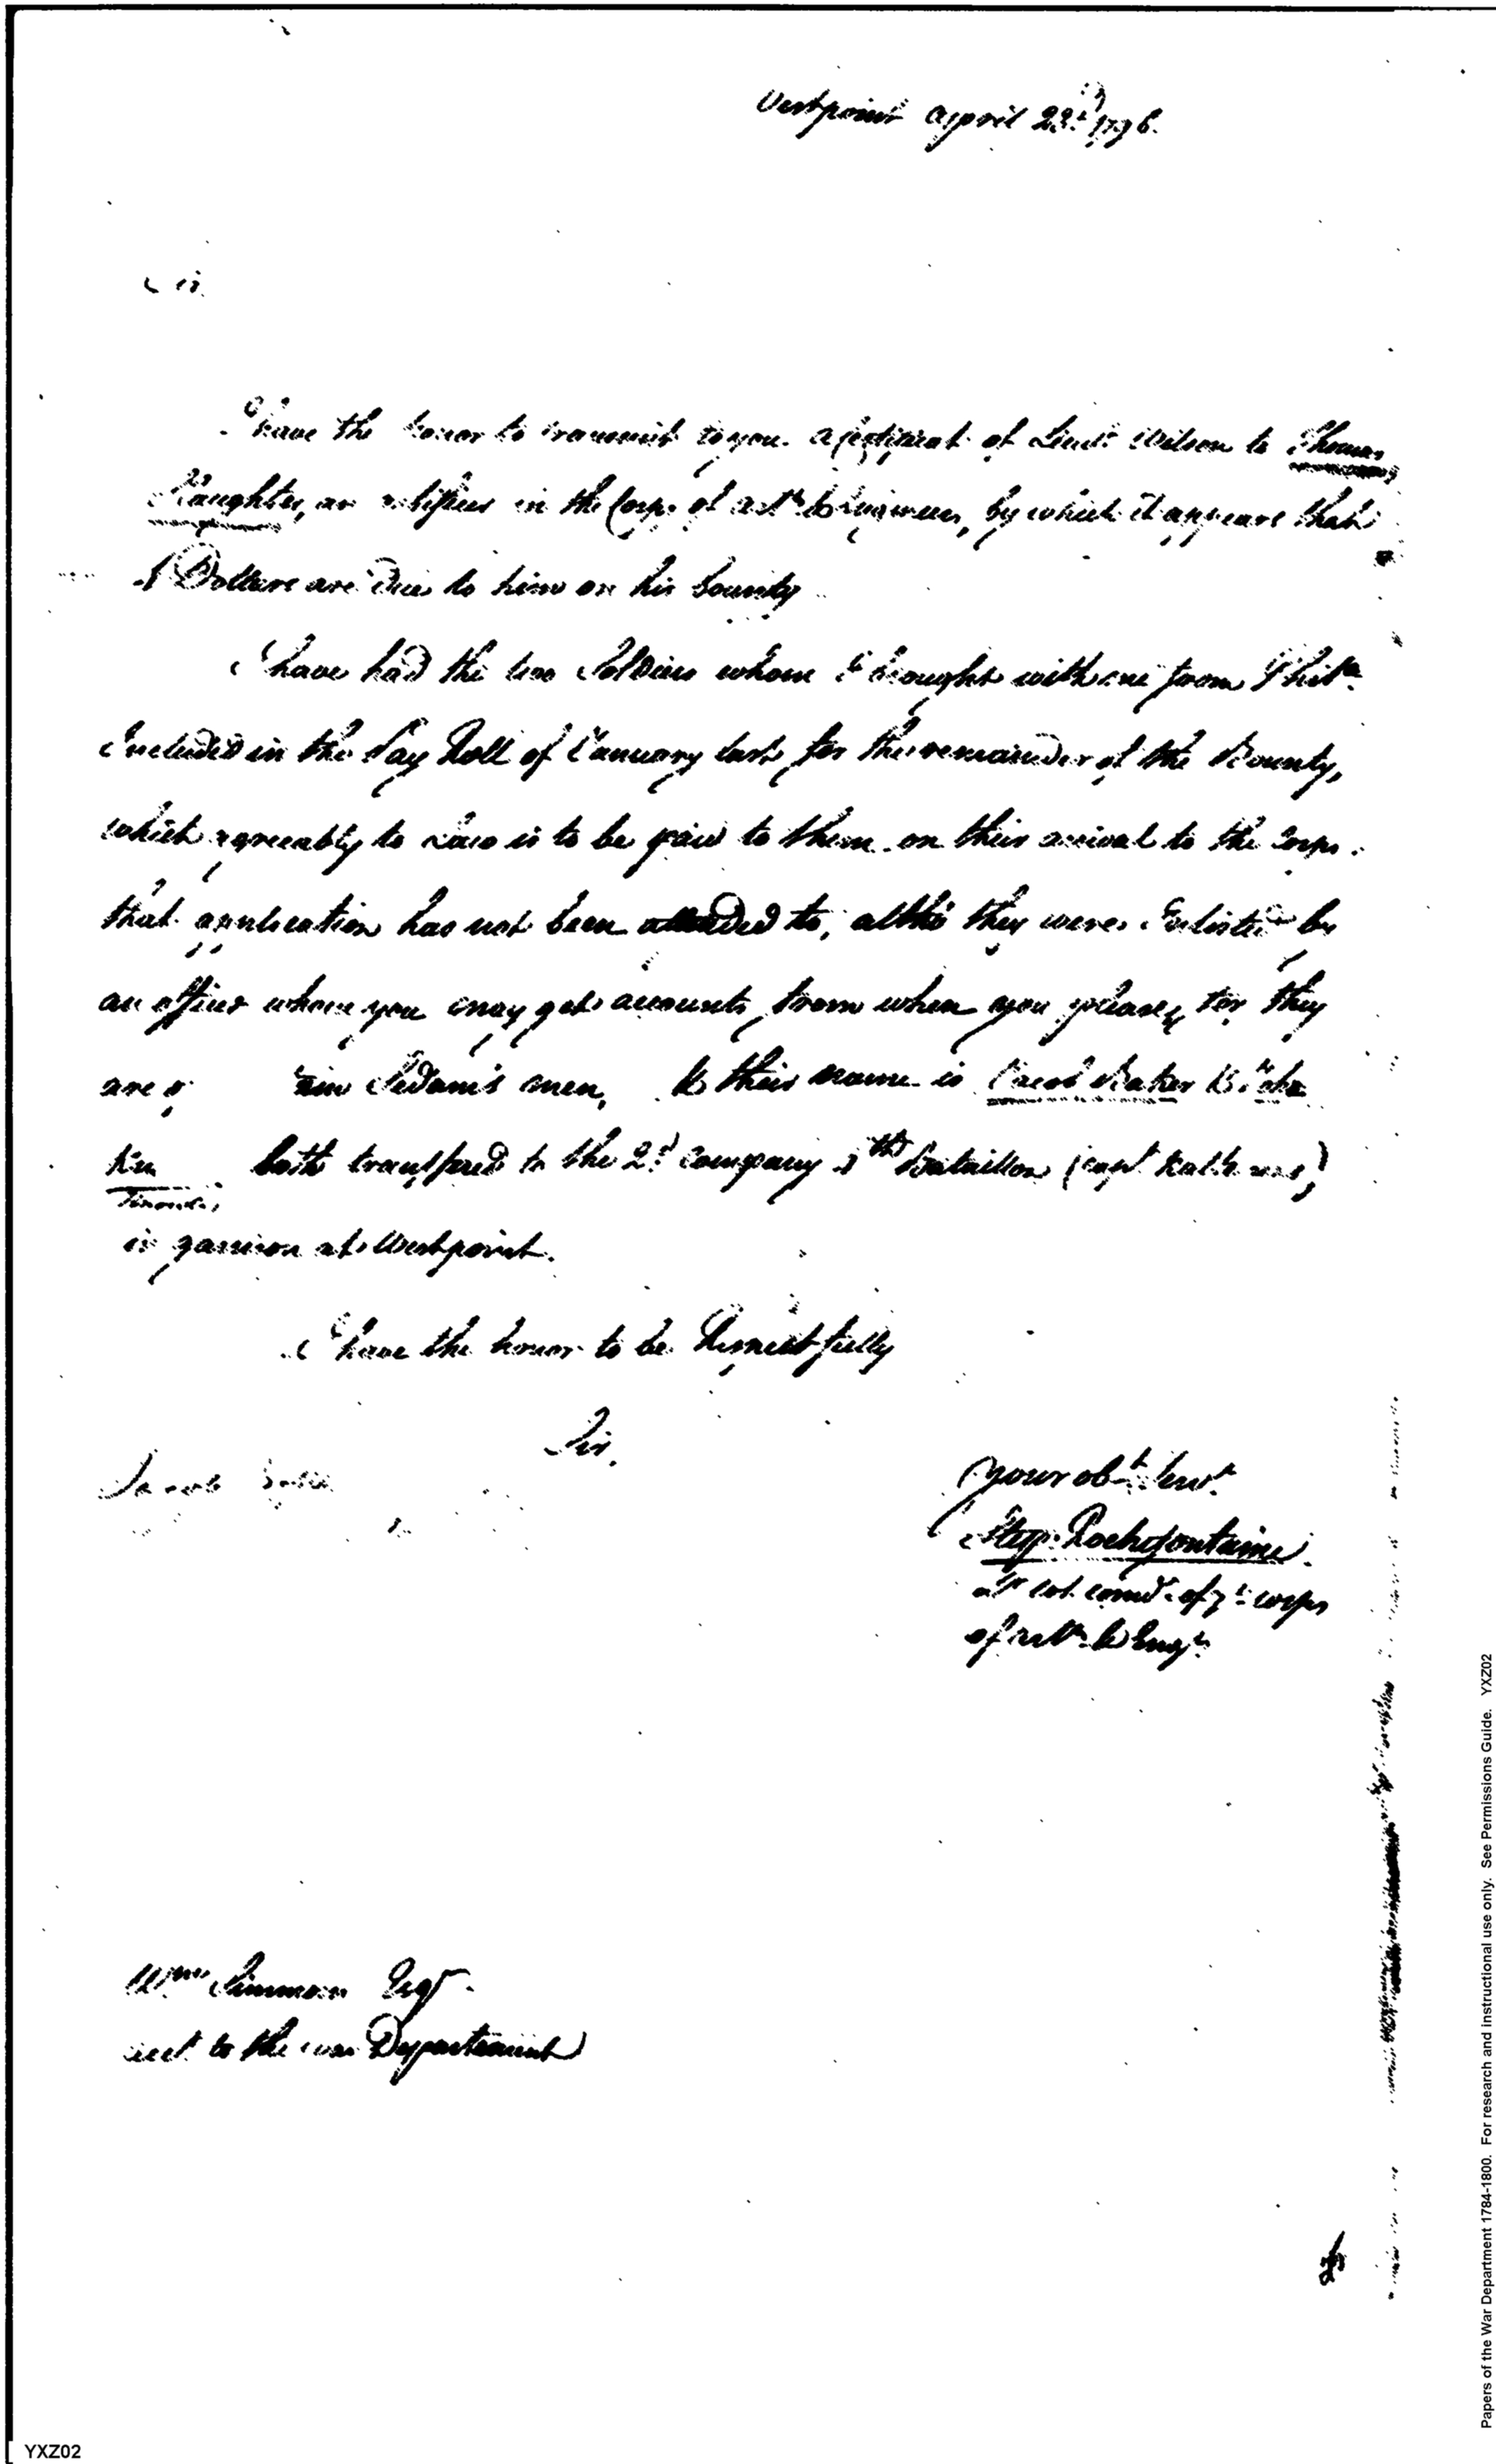 Westpoint April 23d 1796.
Sir
I have the honor to transmit to you a certificat of Lieut. Wilson to Thomas
Slaughter, an artificer in the Corps of Artrs & Engineers, by which it appears that
Dollars are due to him on his bounty
I have had the two Soldiers whom I brought with me from Phila.
Included in the Pay Roll of January last for the remainder of the Bounty,
which agreeably to Law is to be paid to them on their arrival to the corps.
that application has not been attended to, altho they were Enlisted by
an officer whom you may get accounts from when you please, for they
are Sedam's men, & their name is Jacob Baker & John
both transfered to the 2d company Bataillon (capt.
in garrison at Westpoint.
I have the honor to be Respectfully
Sir.
your obt. Servt.
Step. Rochefontaine.
Lt col. comdt. of ye corps
of artrs & Engrs.
Jacob
Wm Simmons Esqr.
acct. to the war Department
YXZ02
Papers of the War Department 1784-1800. For research and instructional use only. See Permissions Guide. YXZ02